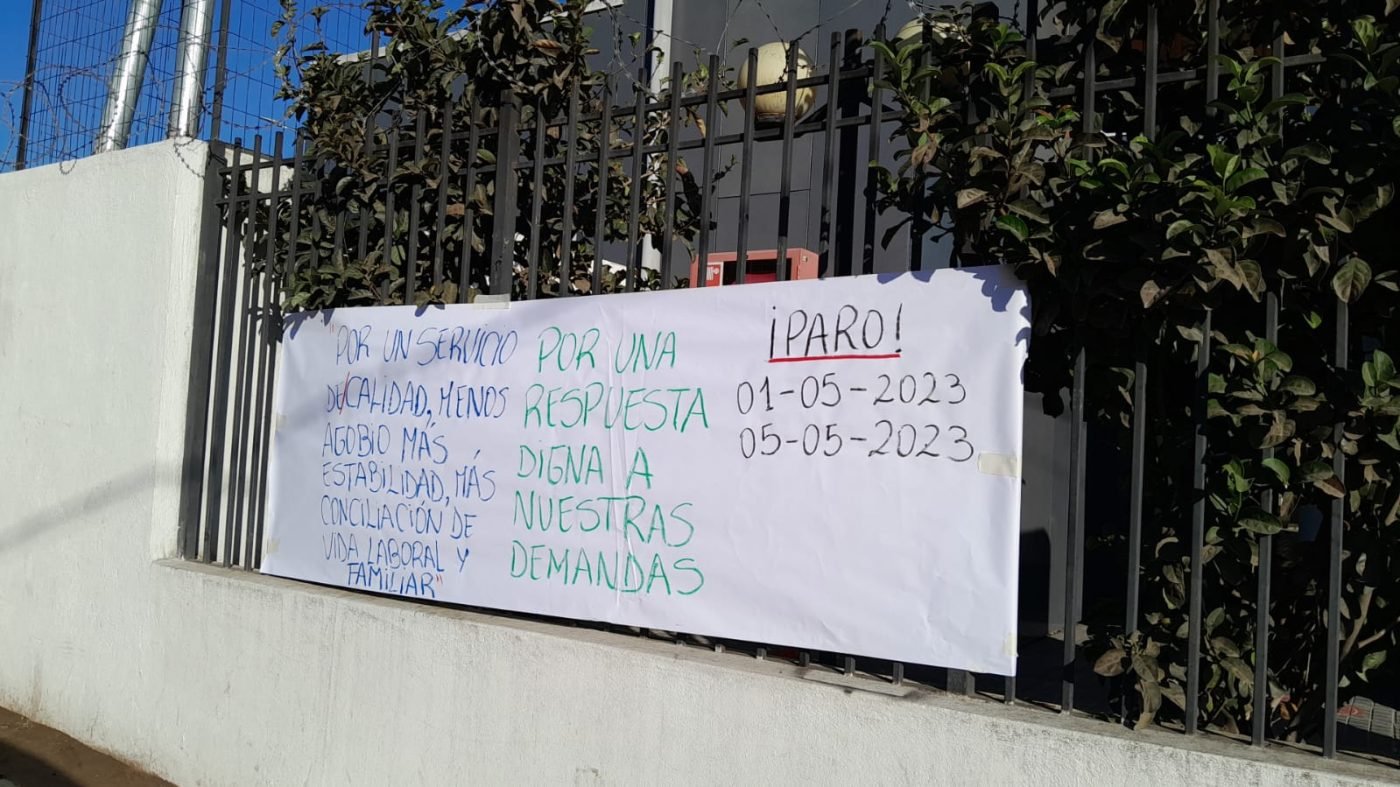 "POR UN SERVICIO
DE CALIDAD, MENOS
AGOBIO MÁS
ESTABILIDAD, MÁS
CONCILIACIÓN DE
VIDA LABORAL Y
FAMILIAR"
POR UNA
RESPUESTA
DIGNA A
NUESTRAS
DEMANDAS
¡PARO!
01-05-2023
05-05-2023